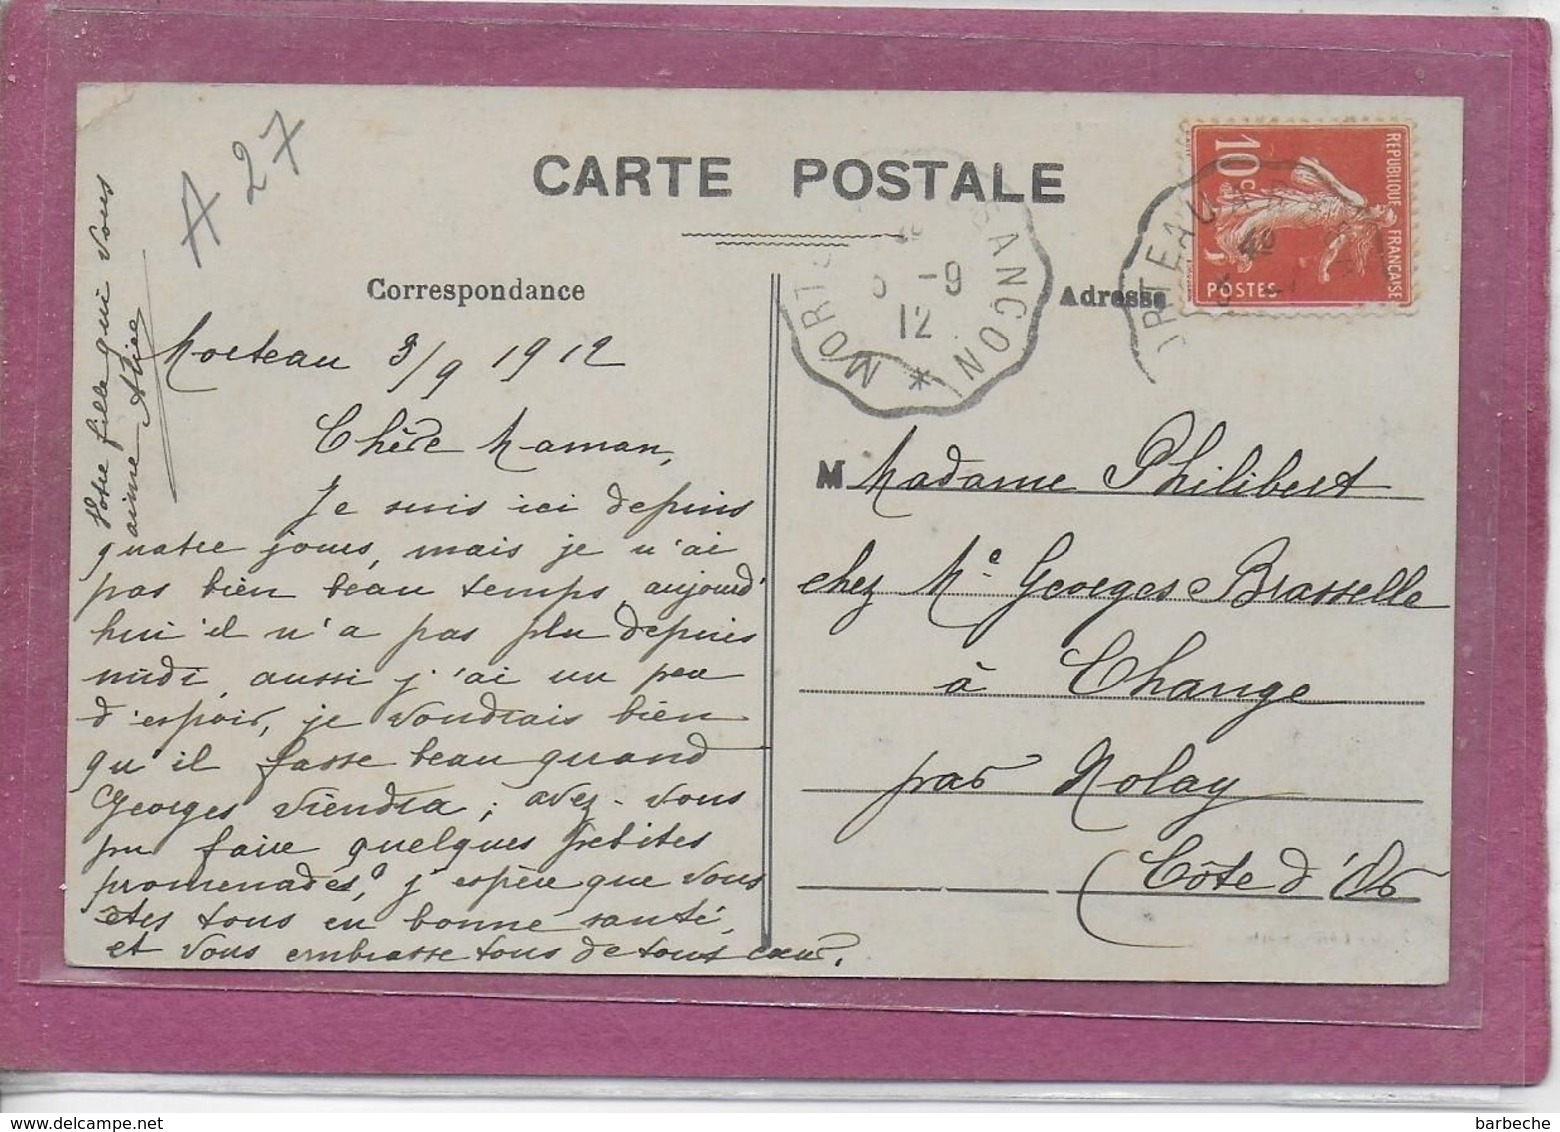 A 27
CARTE POSTALE
Correspondance
Adresse
REPUBLIQUE FRANÇAISE
10c
POSTES
MORTEAU
BESANÇON
-9
12
Morteau 3/9 1912
Chère Maman,
Je suis ici depuis
quatre jours, mais je n'ai
pas bien beau temps, aujourd'
hui il n'a pas plu depuis
midi, aussi j'ai un peu
d'espoir, je voudrais bien
qu'il fasse beau quand
Georges viendra ; avez-vous
pu faire quelques petites
promenades? j'espère que vous
êtes tous en bonne santé,
et vous embrasse tous de tout cœur.
Votre fille qui vous
aime Alice
M Madame Philibert
chez Me Georges Brasselle
à Change
par Nolay
(Côte d'Or
www.delcampe.net
barbeche